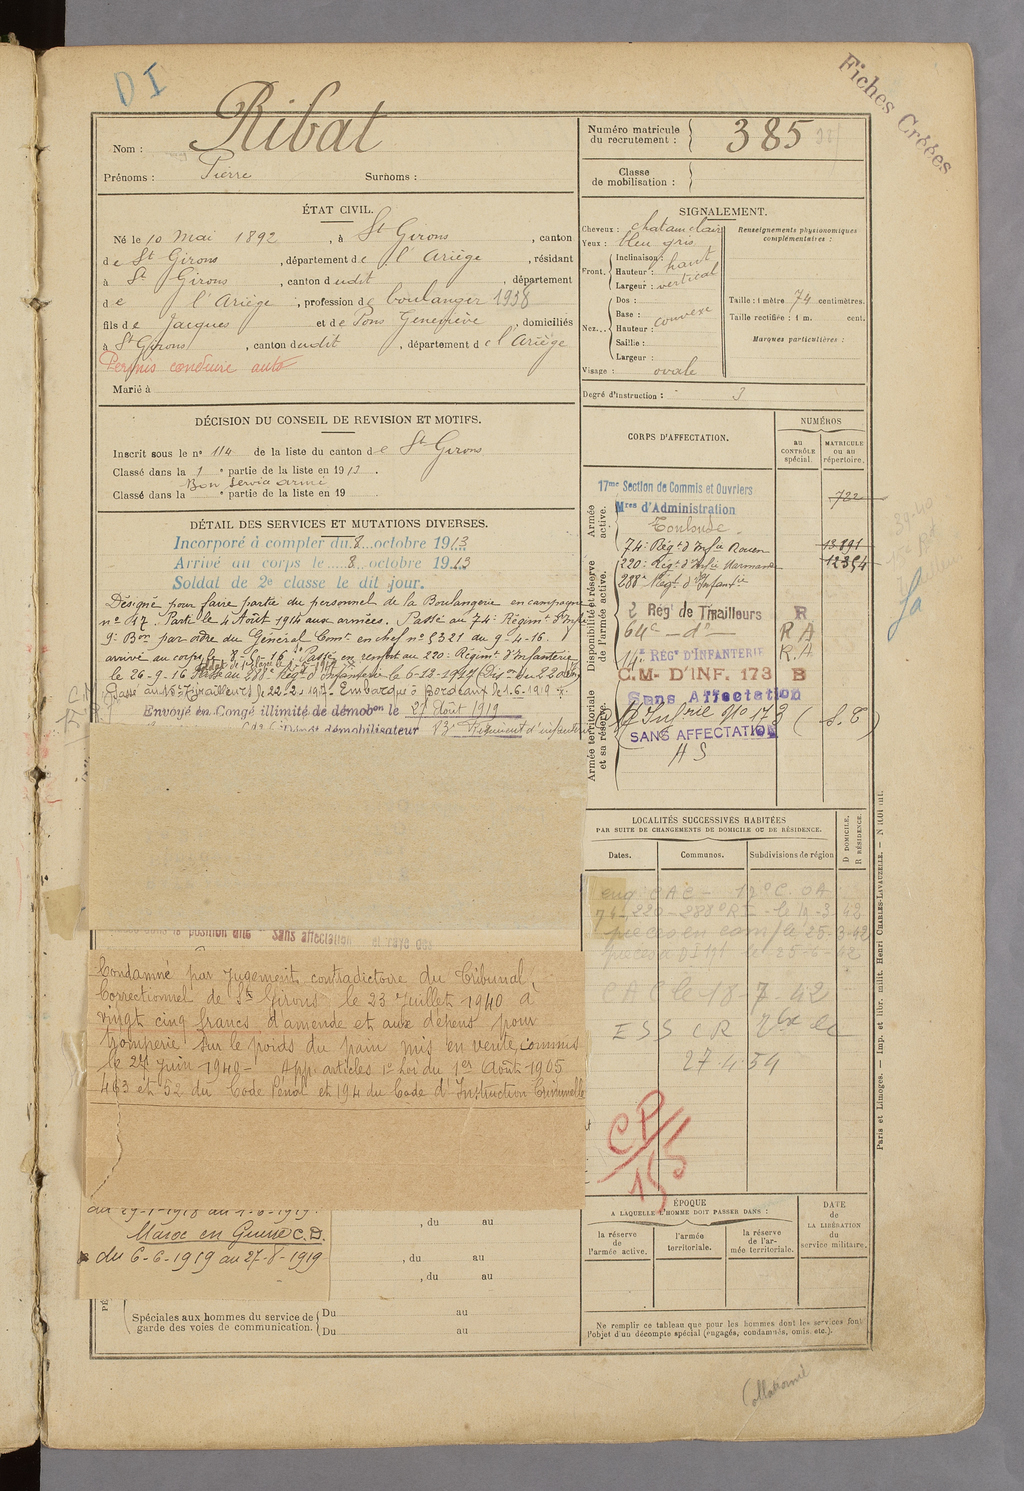 D I
Fiches Créées
Nom : Ribat
Prénoms : Pierre Surnoms :
Numéro matricule du recrutement : 385
Classe de mobilisation :
ÉTAT CIVIL.
Né le 10 Mai 1892, à St Girons, canton
de St Girons, département de l'Ariège, résidant
à St Girons, canton dudit, département
de l'Ariège, profession de boulanger 1938
fils de Jacques et de Pons Geneviève, domiciliés
à St Girons, canton dudit, département de l'Ariège
Permis conduire auto
Marié à
SIGNALEMENT.
Cheveux : chatain clair
Yeux : bleu gris
Front. Inclinaison :
Hauteur : haut
Largeur : vertical
Nez. Dos :
Base :
Hauteur : convexe
Saillie :
Largeur :
Visage : ovale
Renseignements physionomiques complémentaires :
Taille : 1 mètre 74 centimètres.
Taille rectifiée : 1 m. cent.
Marques particulières :
Degré d'instruction : 3
DÉCISION DU CONSEIL DE REVISION ET MOTIFS.
Inscrit sous le n° 114 de la liste du canton de St Girons
Classé dans la 1e partie de la liste en 1913.
Bon service armé
Classé dans la e partie de la liste en 19
DÉTAIL DES SERVICES ET MUTATIONS DIVERSES.
Incorporé à compter du 8 octobre 1913
Arrivé au corps le 8 octobre 1913
Soldat de 2e classe le dit jour.
Désigné pour faire partie du personnel de la Boulangerie en campagne
n° 17. Parti le 4 Août 1914 aux armées. Passé au 74e Régiment d'Infie
9e Bon par ordre du Général Comt en chef n° 5321 du 9-4-16.
arrivé au corps le 8-5-16. Passé en renfort au 220e Régiment d'Infanterie
le 26-9-16 Passé au 288e Régt d'Infanterie le 6-12-1917
Passé au Tirailleurs le 22-2-19 Embarqué à Bordeaux le 1-6-1919
Envoyé en Congé illimité de démobon le 27 Août 1919
démobilisateur 83e Régiment d'infanterie
dans la position dite Sans affectation et rayé des
Condamné par Jugement contradictoire du Tribunal
Correctionnel de St Girons le 23 Juillet 1940 à
vingt cinq francs d'amende et aux dépens pour
tromperie sur le poids du pain mis en vente, commis
le 21 Juin 1940 - App. articles 1er Loi du 1er Août 1905
463 et 52 du Code Pénal et 194 du Code d'Instruction Criminelle
au 29-1-1918 au 1-6-1919.
Maroc en Guerre C.D.
du 6-6-1919 au 27-8-1919
, du au
, du au
, du au
Spéciales aux hommes du service de garde des voies de communication.
Du au
Du au
CORPS D'AFFECTATION.
NUMÉROS
au CONTRÔLE spécial.
MATRICULE ou au répertoire.
Armée active.
17me Section de Commis et Ouvriers
Mres d'Administration 722
Toulouse
Disponibilité et réserve de l'armée active.
74e Régt d'Infie Rouen 13891
220e Régt d'Infie Marmande 12354
288e Régt d'Infanterie
2 Rég' de Tirailleurs R
64e - do - R A
14e RÉGt D'INFANTERIE R.A
C.M- D'INF. 173 B
Armée territoriale et sa réserve.
Sans Affectation
Infrie No 173 (S.C)
SANS AFFECTATION
H S
LOCALITÉS SUCCESSIVES HABITÉES
PAR SUITE DE CHANGEMENTS DE DOMICILE OU DE RÉSIDENCE.
Dates. Communes. Subdivisions de région
D DOMICILE.
R RÉSIDENCE.
74-220-288e RI - le 19-3-42
pièces en comm le 25-3-42
A C le 18-7-42
ESS CR
27-4-54
CP/155
ÉPOQUE
A LAQUELLE L'HOMME DOIT PASSER DANS :
la réserve de l'armée active.
l'armée territoriale.
la réserve de l'armée territoriale.
DATE de LA LIBÉRATION du service militaire.
Ne remplir ce tableau que pour les hommes dont les services font
l'objet d'un décompte spécial (engagés, condamnés, omis, etc.).
Paris et Limoges. — Imp. et libr. milit. Henri CHARLES-LAVAUZELLE.
Collationné